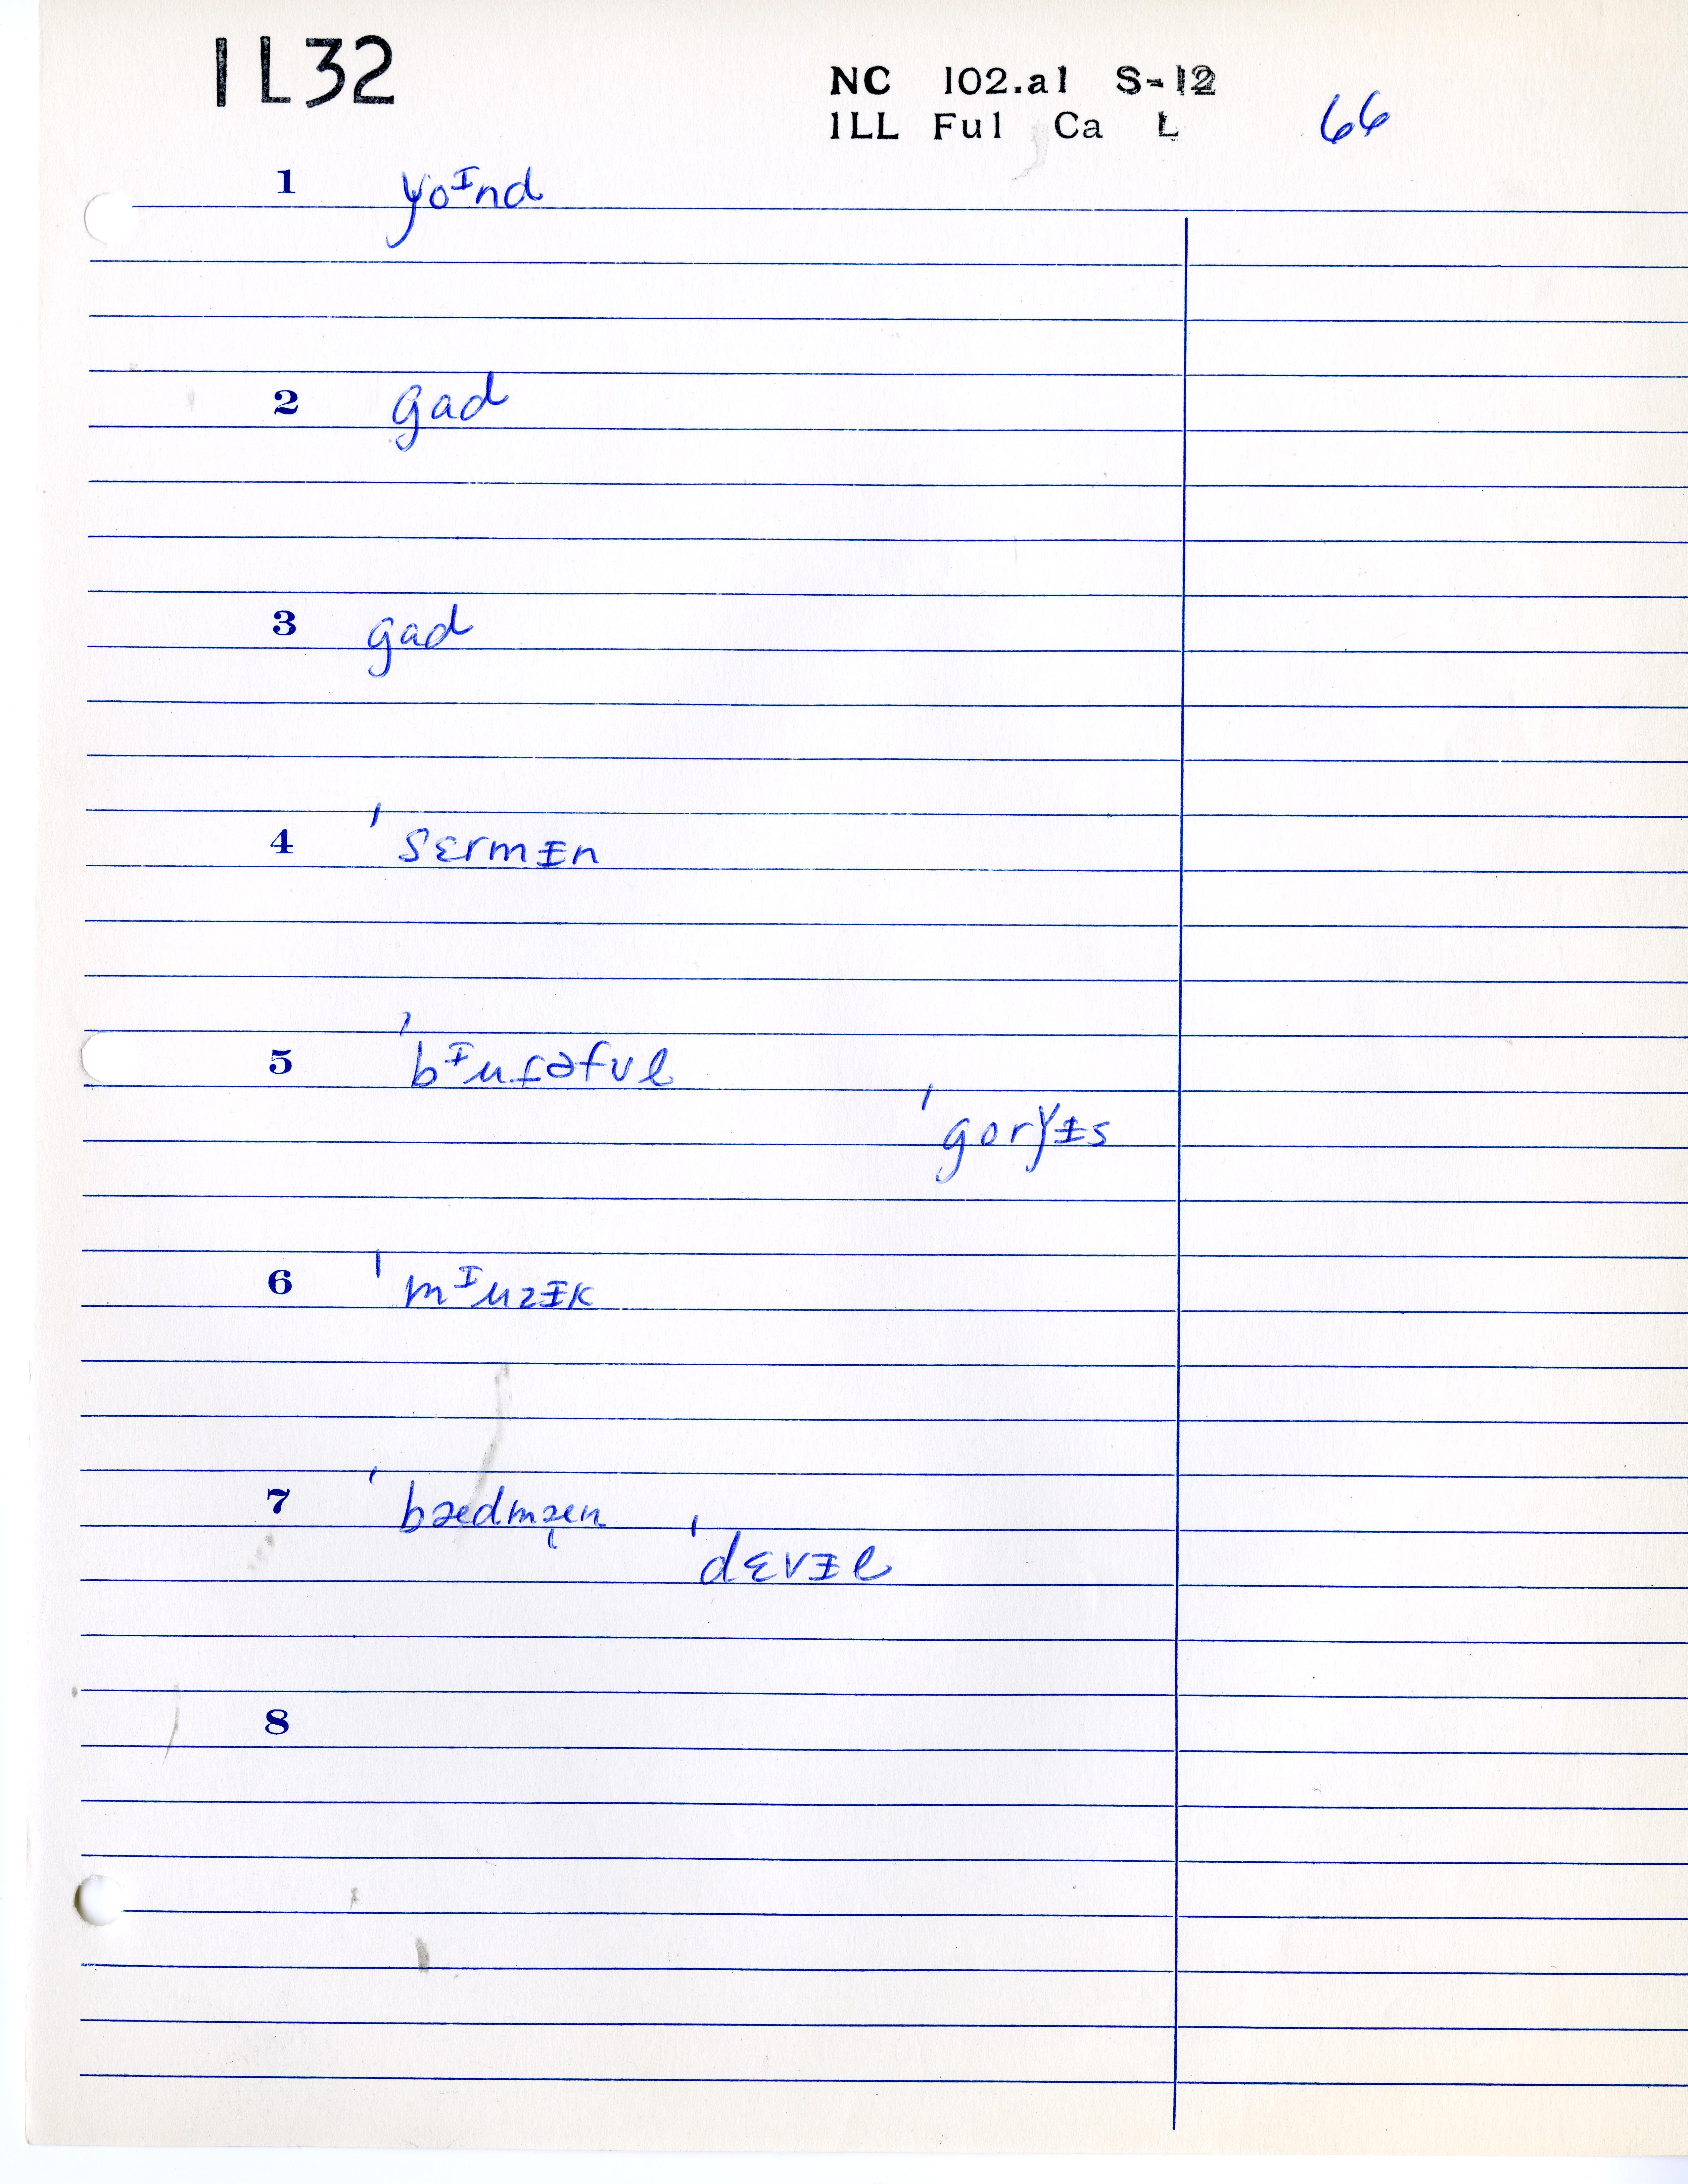 1L32
NC 102.a1 S-12
1LL Ful Ca L 66
1 ǰoᶦnd
2 gad
3 gad
4 ˈsɛrmɨn
5 ˈbᶦuɾəful
ˈgorǰɨs
6 ˈmᶦuzɨk
7 ˈbædmæ̨n
ˈdɛvɨl
8